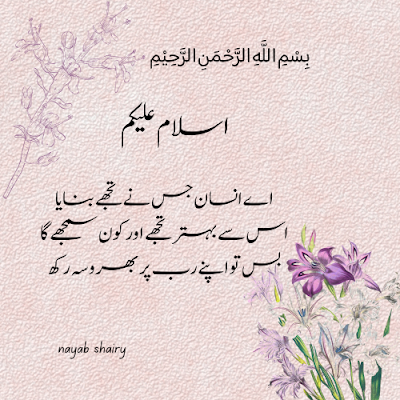 بِسْمِ اللَّهِ الرَّحْمَنِ الرَّحِيْمِ
اسلام علیکم
اے انسان جس نے تجھے بنایا
اس سے بہتر تجھے اور کون سمجھے گا
بس تو اپنے رب پر بھروسہ رکھ
nayab shairy